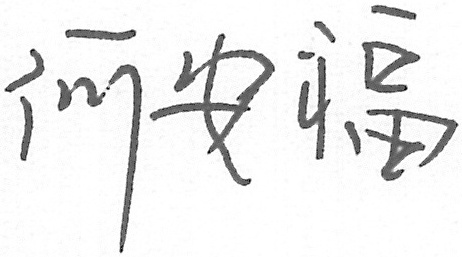 何安福